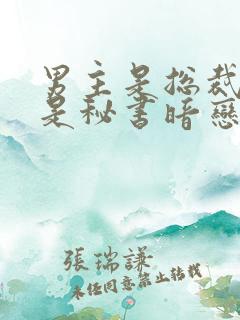 男主是总裁
是秘书暗戀
張瑞謙
未經同意禁止轉載